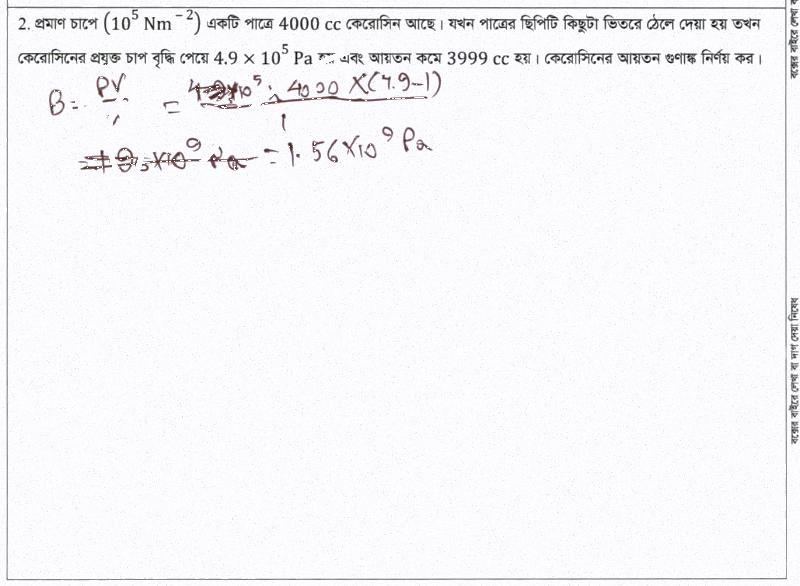 2. প্রমাণ চাপে (10⁵ Nm⁻²) একটি পাত্রে 4000 cc কেরোসিন আছে। যখন পাত্রের ছিপিটি কিছুটা ভিতরে ঠেলে দেয়া হয় তখন
কেরোসিনের প্রযুক্ত চাপ বৃদ্ধি পেয়ে 4.9 × 10⁵ Pa এবং আয়তন কমে 3999 cc হয়। কেরোসিনের আয়তন গুণাঙ্ক নির্ণয় কর।
B = PV = ×10⁵ × 4000 × (4.9-1)
1
= 1.56×10⁹ Pa
বক্সের বাইরে লেখা বা দাগ দেয়া নিষেধ
বক্সের বাইরে লেখা ব